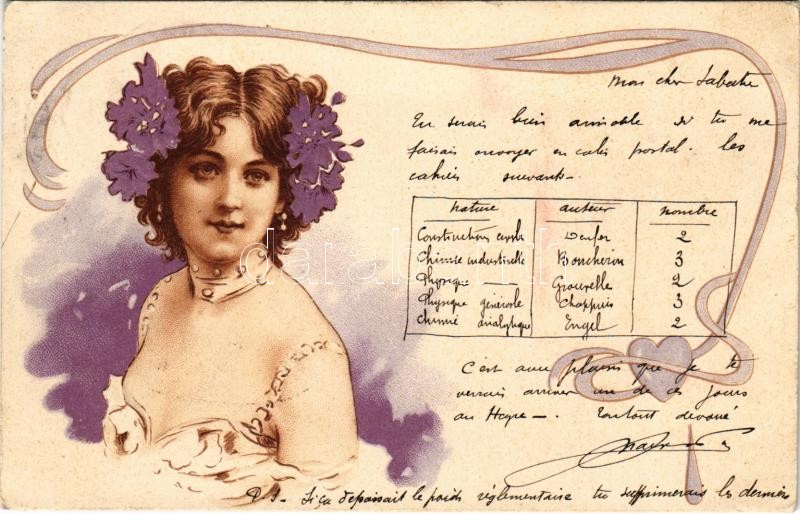 mon cher Labatre
Tu serais bien aimable si tu me
faisais envoyer en colis postal. les
cahiers suivants -
nature auteur nombre
Constructions 2
Chimie industrielle Boucheron 3
Physique — Grouvelle 2
Physique générale Chappuis 3
Chimie analytique Engel 2
C'est avec plaisir que je te
verrais arriver un de ces jours
au Havre -. Tontout dévoué
P S - Si ça dépassait le poids réglementaire tu supprimerais les derniers
darabanth